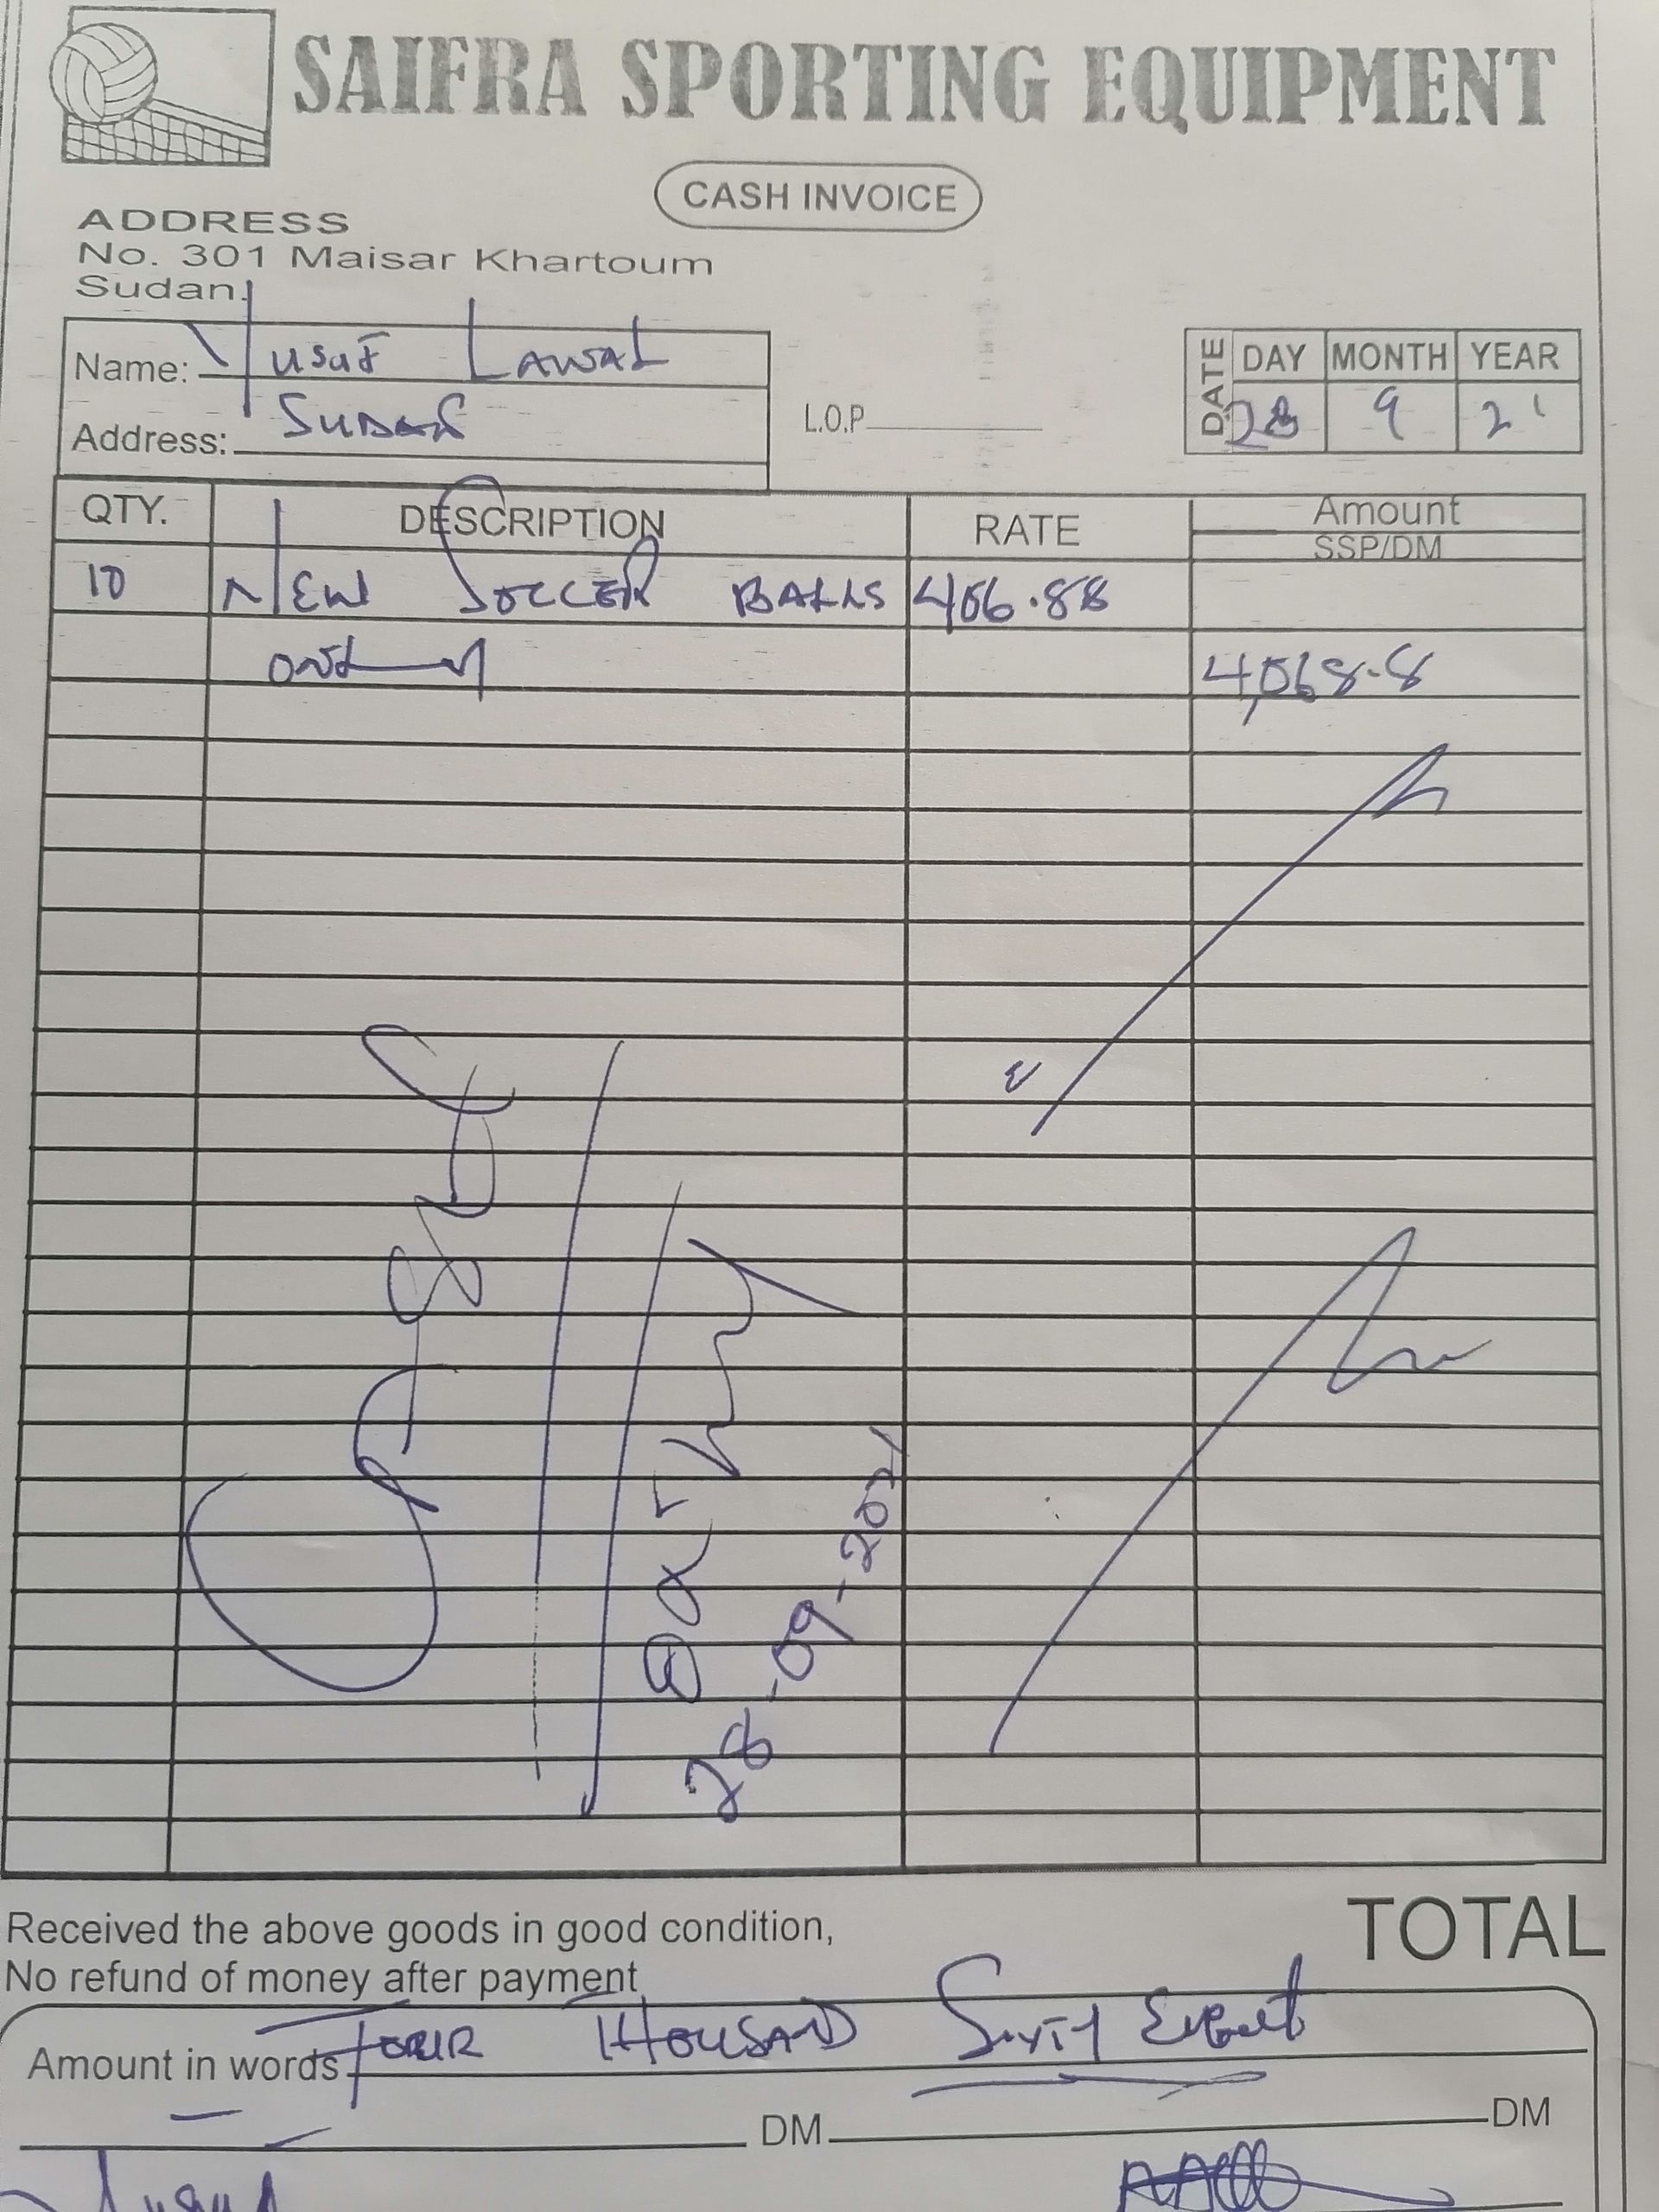 SAIFRA SPORTING EQUIPMENT
CASH INVOICE
ADDRESS
No. 301 Maisar Khartoum
Sudan.
Name: Yusuf LAWAL
Address: SUDAN
L.O.P
DATE DAY MONTH YEAR
28 9 21
QTY. DESCRIPTION RATE Amount
SSP/DM
10 NEW SOCCER BALLS 406.88
only 4,068.8
28-09-2021
Received the above goods in good condition,
No refund of money after payment
TOTAL
Amount in words FOUR THOUSAND SIXTY Eight
DM DM
Yusuf